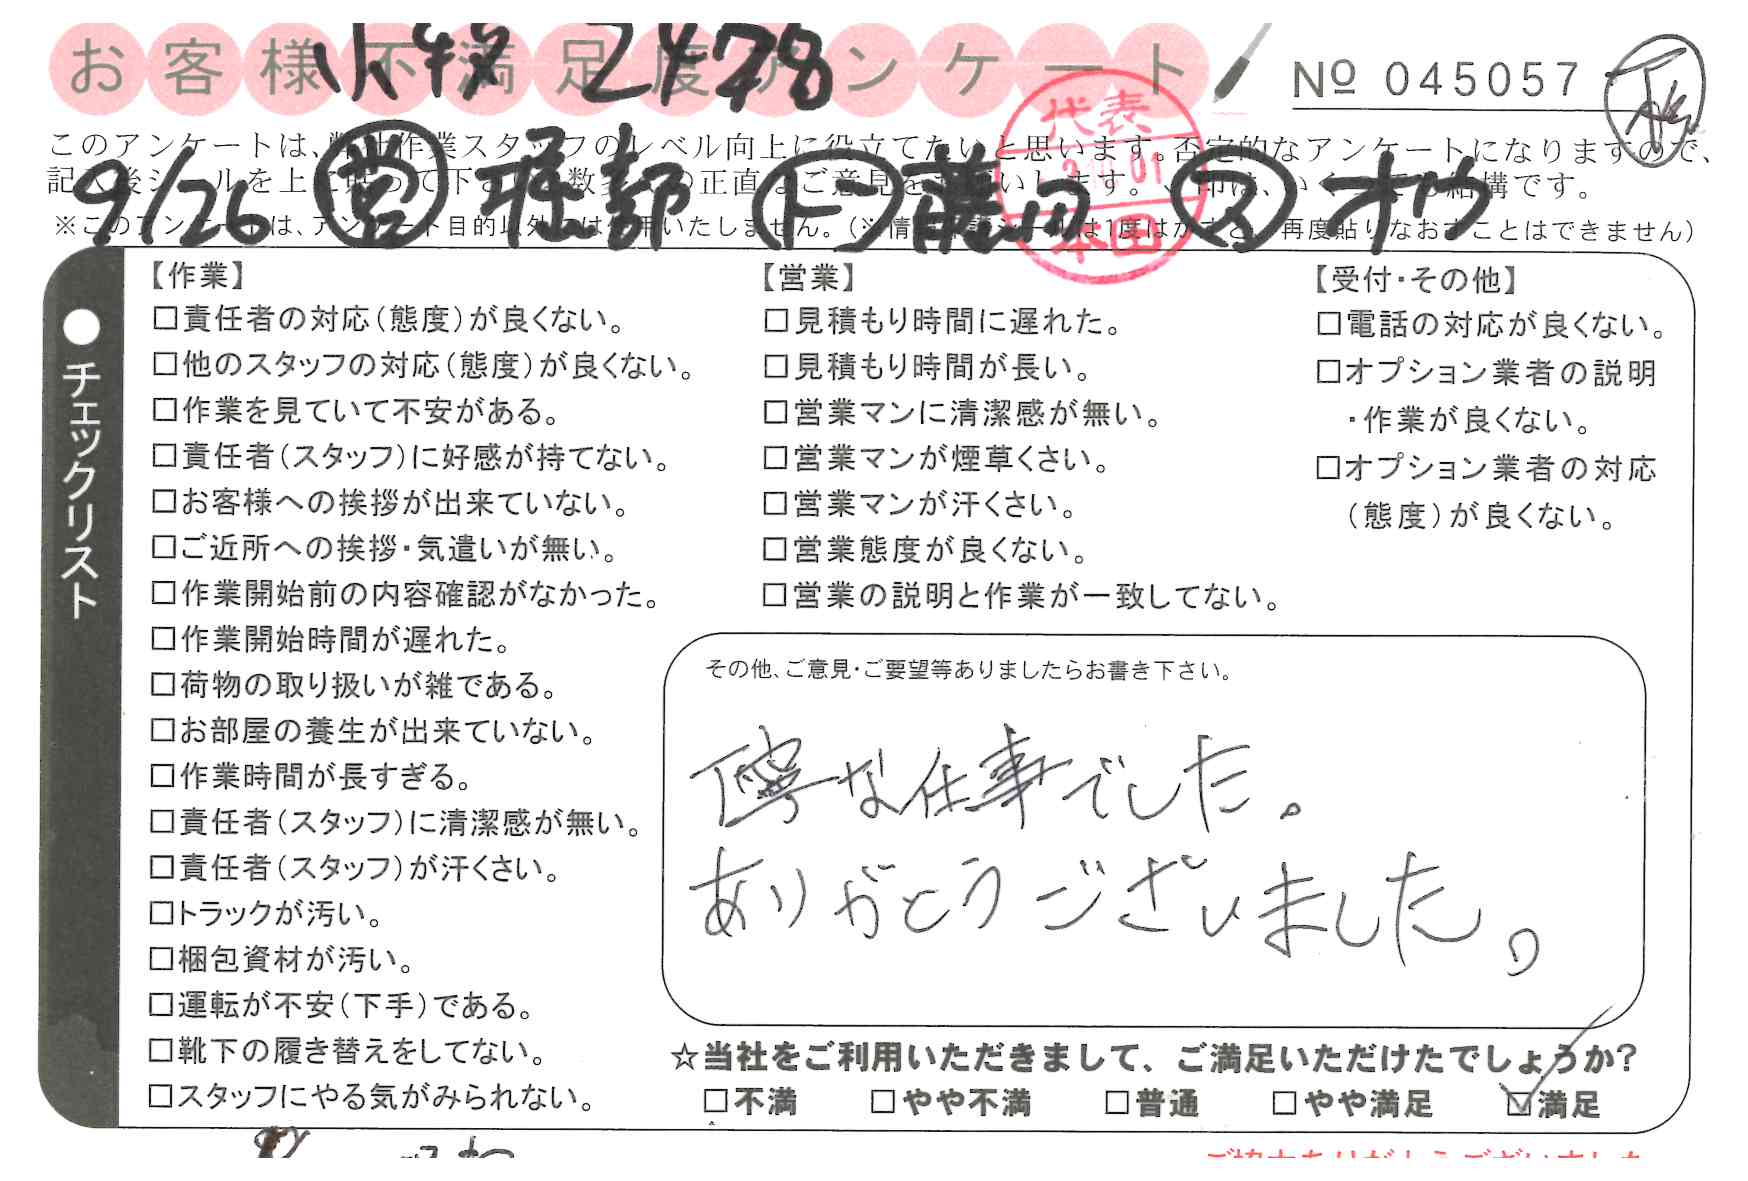 お客様不満足度アンケート
小牧 2478
№ 045057
このアンケートは、弊社作業スタッフのレベル向上に役立てたいと思います。否定的なアンケートになりますので、
記入後シールを上に貼って下さい。数多くの正直なご意見をお願いします。、印は、いくつでも結構です。
※このアンケートは、アンケート目的以外には使用いたしません。(※情報保護シールは1度はがすと、再度貼りなおすことはできません)
9/26 営 堀部 ド 藤田 ス オウ
代表
本田
●チェックリスト
【作業】
□責任者の対応(態度)が良くない。
□他のスタッフの対応(態度)が良くない。
□作業を見ていて不安がある。
□責任者(スタッフ)に好感が持てない。
□お客様への挨拶が出来ていない。
□ご近所への挨拶・気遣いが無い。
□作業開始前の内容確認がなかった。
□作業開始時間が遅れた。
□荷物の取り扱いが雑である。
□お部屋の養生が出来ていない。
□作業時間が長すぎる。
□責任者(スタッフ)に清潔感が無い。
□責任者(スタッフ)が汗くさい。
□トラックが汚い。
□梱包資材が汚い。
□運転が不安(下手)である。
□靴下の履き替えをしてない。
□スタッフにやる気がみられない。
【営業】
□見積もり時間に遅れた。
□見積もり時間が長い。
□営業マンに清潔感が無い。
□営業マンが煙草くさい。
□営業マンが汗くさい。
□営業態度が良くない。
□営業の説明と作業が一致してない。
【受付・その他】
□電話の対応が良くない。
□オプション業者の説明
・作業が良くない。
□オプション業者の対応
(態度)が良くない。
その他、ご意見・ご要望等ありましたらお書き下さい。
丁寧な仕事でした。
ありがとうございました。
☆当社をご利用いただきまして、ご満足いただけたでしょうか?
□不満 □やや不満 □普通 □やや満足 ☑満足
ご協力ありがとうございました